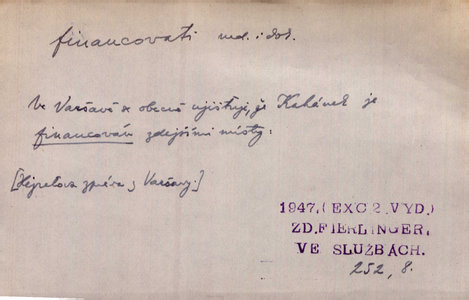 financovati ned. i dok.
Ve Varšavě se obecně ujišťuje, že Kahánek je
financován zdejšími místy:
[Hejretova zpráva z Varšavy.]
1947.(EXC 2.VYD.)
ZD.FIERLINGER,
VE SLUŽBÁCH.
252, 8.